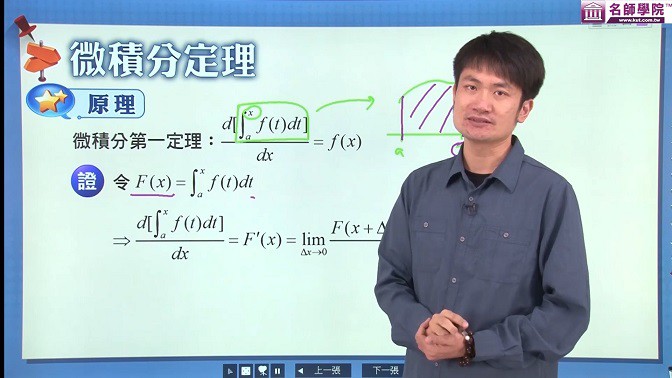 名師學院™
www.kut.com.tw
微積分定理
原理
微積分第一定理：d[∫ₐˣ f(t)dt]/dx = f(x)
a
證 令 F(x) = ∫ₐˣ f(t)dt
⇒ d[∫ₐˣ f(t)dt]/dx = F′(x) = lim Δx→0 F(x+Δ
上一張 下一張